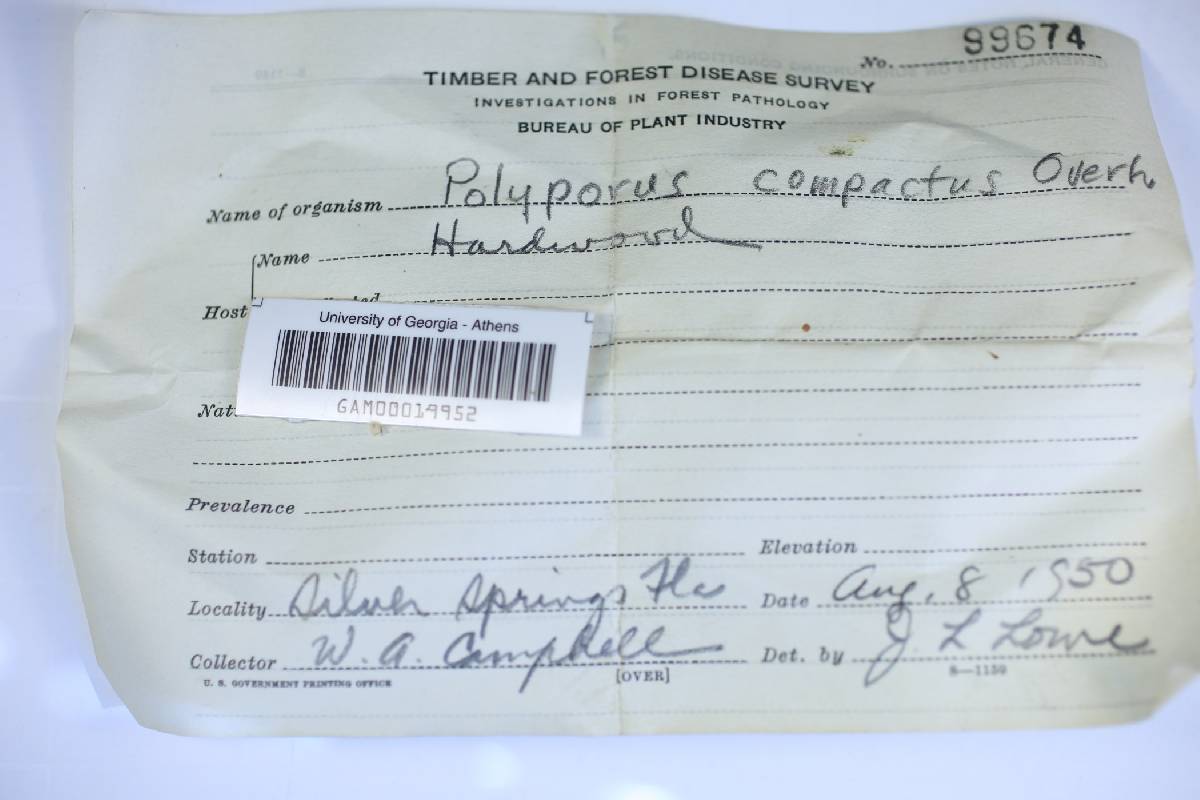 No. 99674
TIMBER AND FOREST DISEASE SURVEY
INVESTIGATIONS IN FOREST PATHOLOGY
BUREAU OF PLANT INDUSTRY
Name of organism Polyporus compactus Overh.
Name Hardwood
Host
University of Georgia - Athens
GAM00014952
Nat
Prevalence
Station Elevation
Locality Silver Springs Fla Date Aug. 8 1950
Collector W. A. Campbell Det. by J. L. Lowe
U. S. GOVERNMENT PRINTING OFFICE [OVER] 8—1159